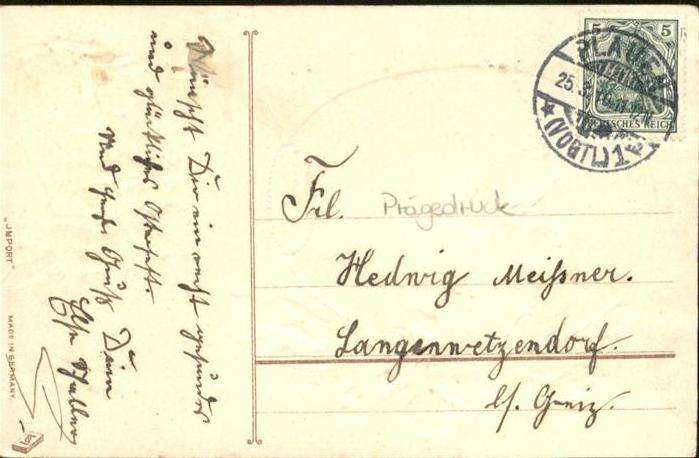 Wünscht Dir ein recht gesundes
und glückliches Osterfest.
Und herzl. Gruß Dein
Else
5 5
DEUTSCHES REICH
PLAUEN
25.3.
(VOGTL) 1
Frl. Prägedruck
Hedwig Meißner.
Langenwetzendorf.
b/. Greiz.
"IMPORT"
MADE IN GERMANY.